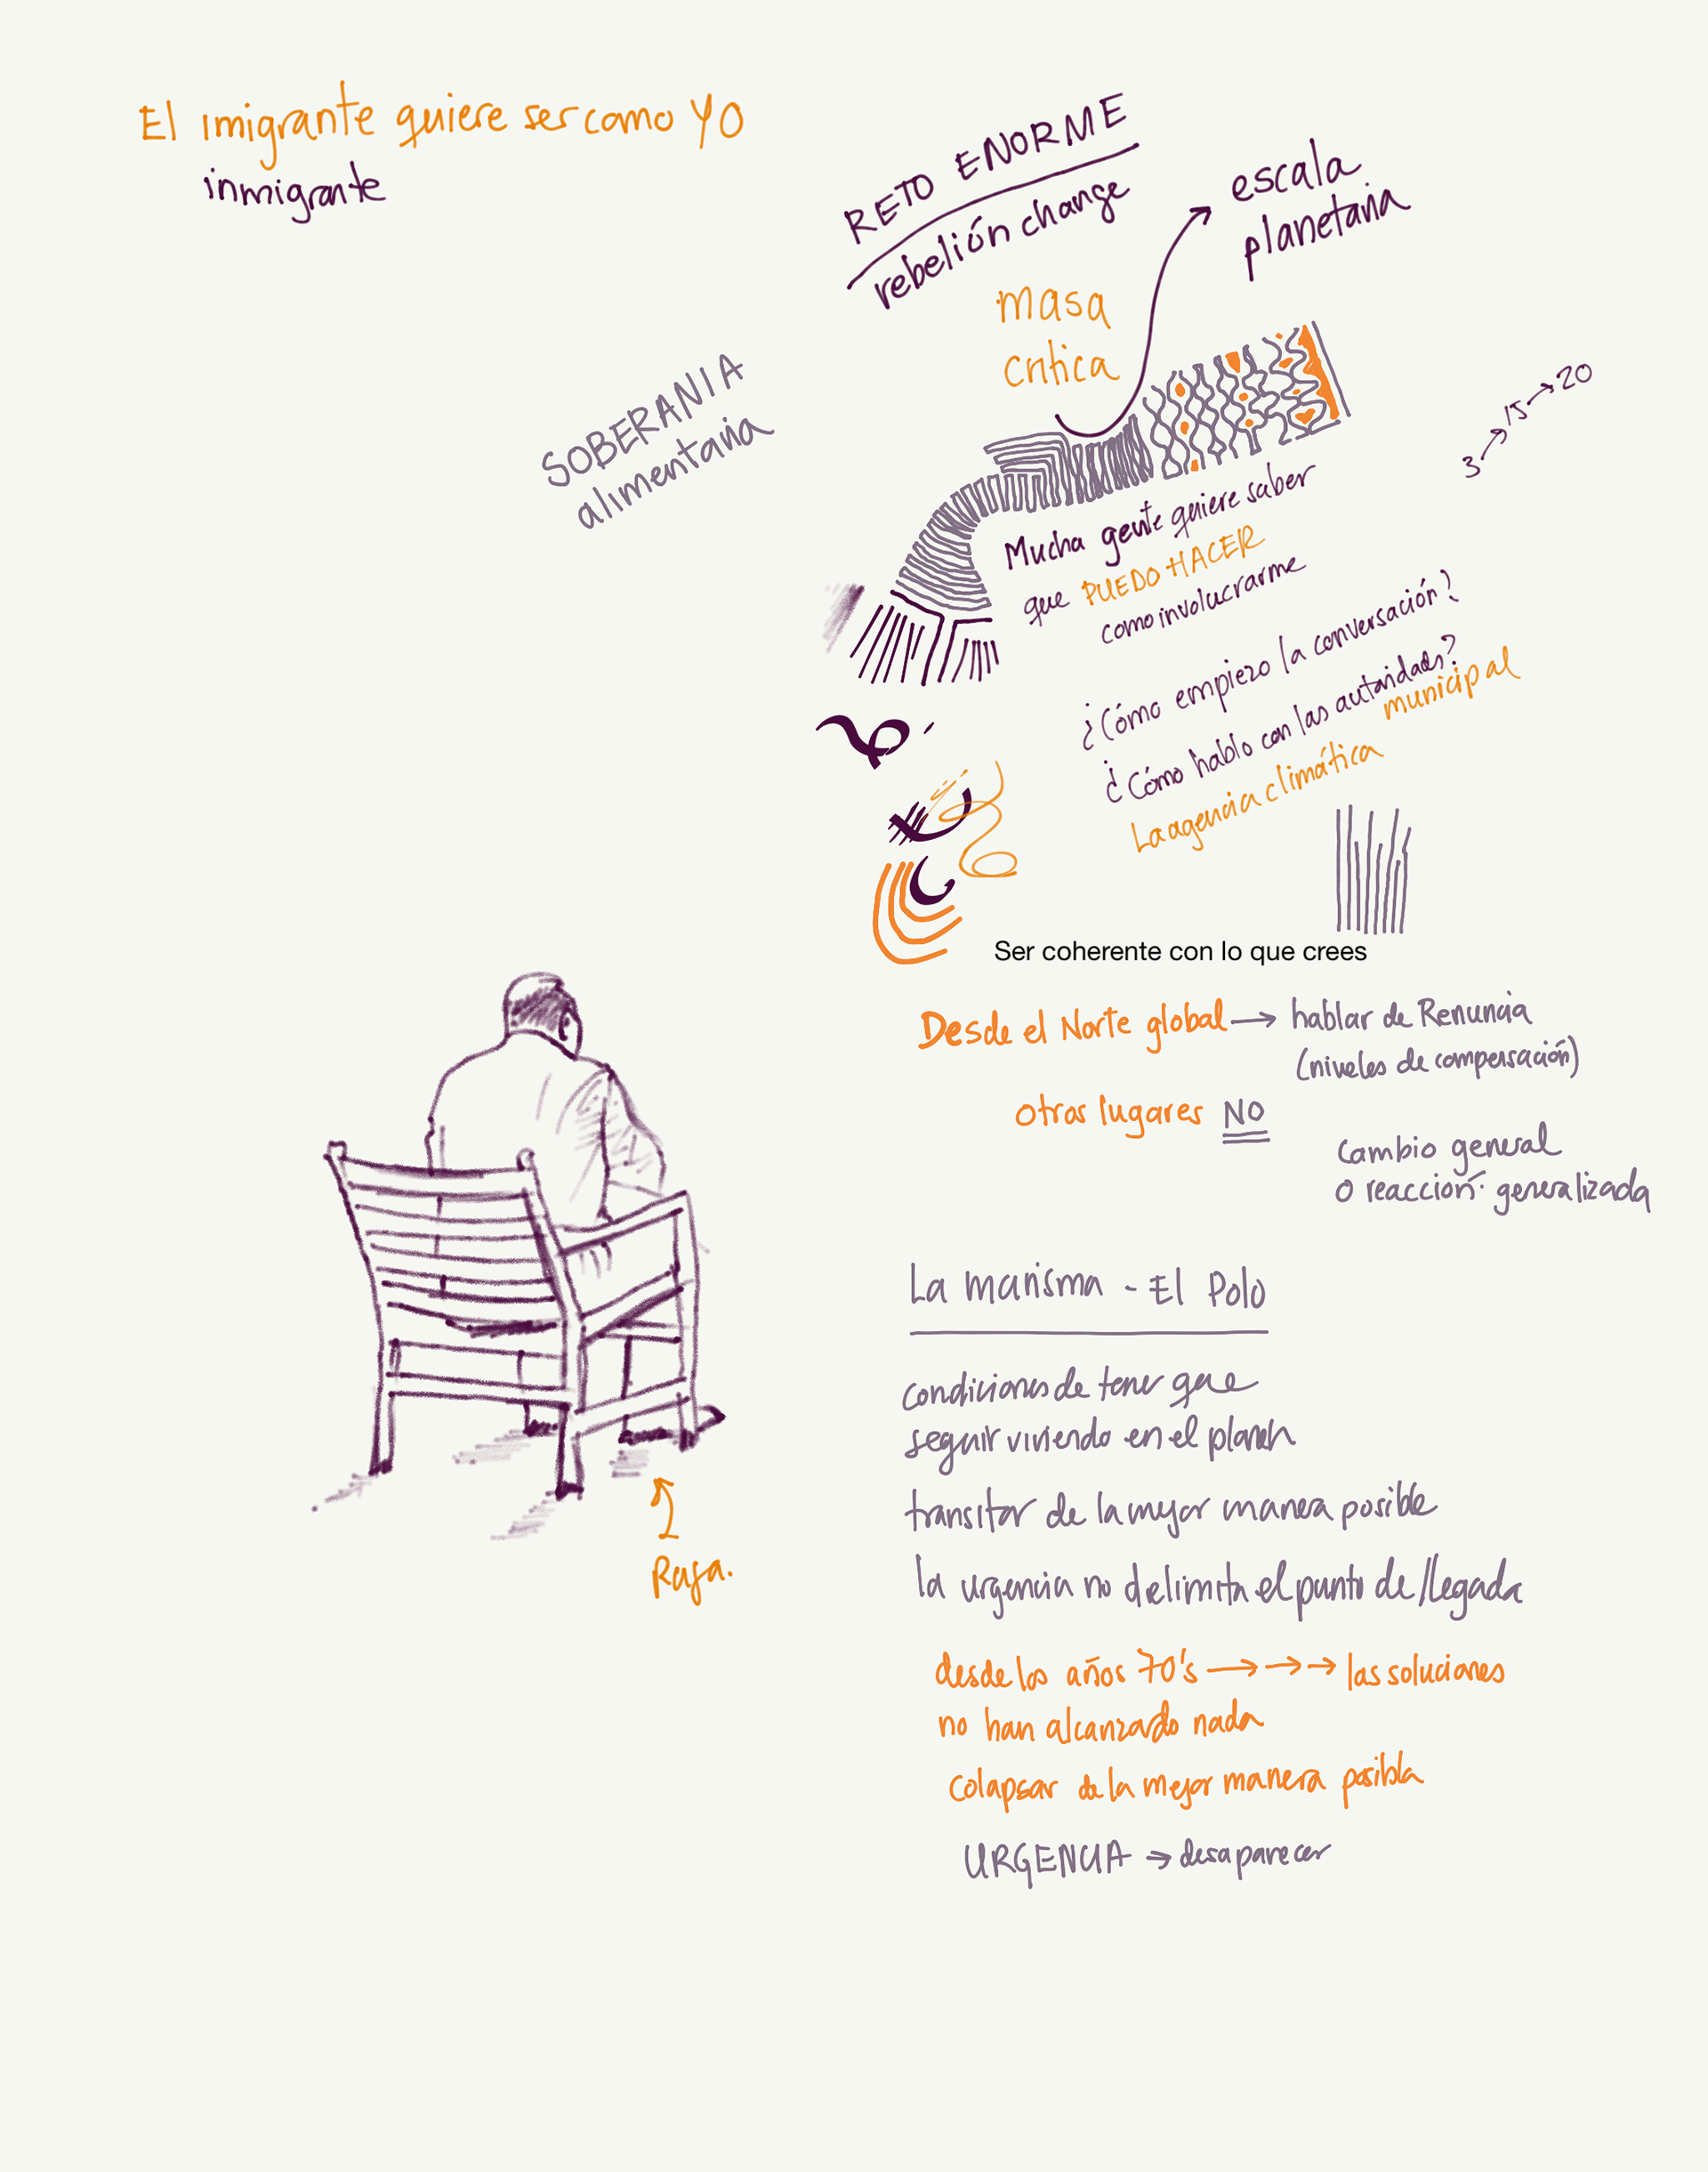 El imigrante quiere ser como YO
inmigrante
RETO ENORME
rebelión change
escala
planetaria
masa
critica
SOBERANIA
alimentaria
3 → 15 → 20
Mucha gente quiere saber
que PUEDO HACER
como involucrarme
¿Cómo empiezo la conversación?
¿Cómo hablo con las autoridades?
municipal
La agencia climática
Ser coherente con lo que crees
Desde el Norte global → hablar de Renuncia
(niveles de compensación)
otros lugares NO
cambio general
o reacción generalizada
La marisma - El Polo
condiciones de tener que
seguir viviendo en el planeta
transitar de la mejor manera posible
la urgencia no delimita el punto de llegada
desde los años 70's → → → las soluciones
no han alcanzado nada
colapsar de la mejor manera posible
URGENCIA → desaparecer
Rafa.